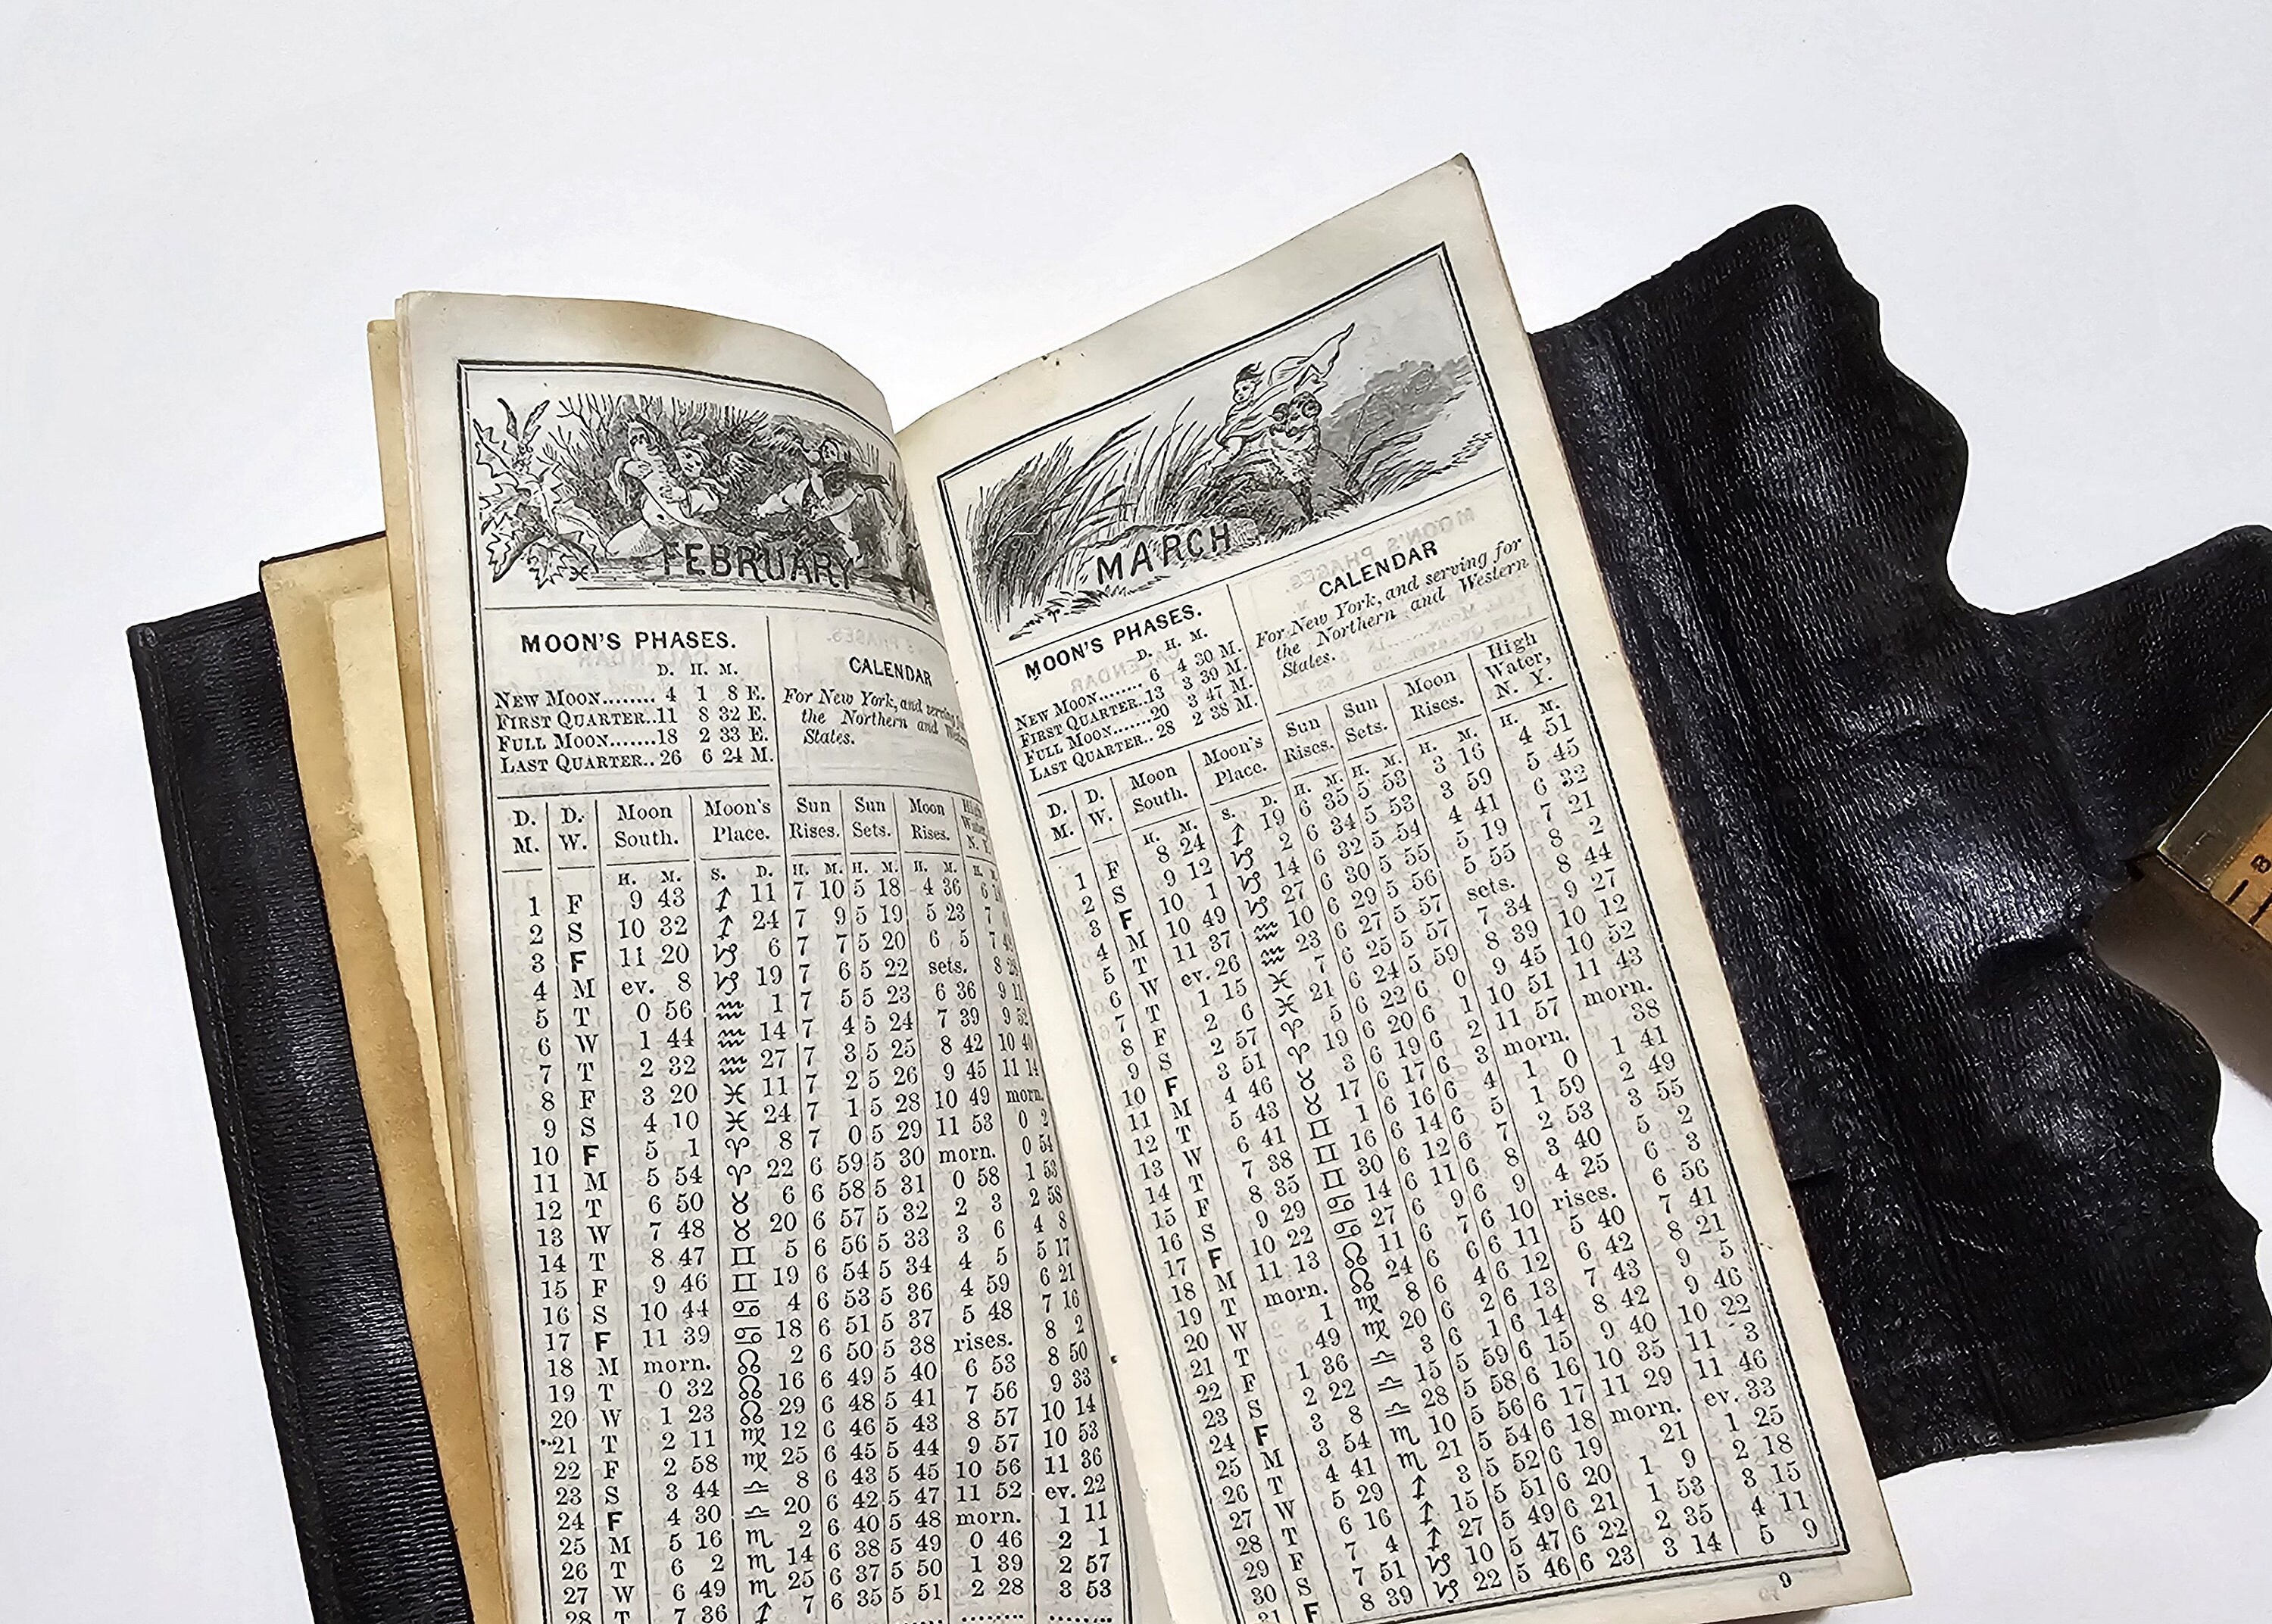 FEBRUARY
MOON'S PHASES.
D. H. M.
NEW MOON........ 4 1 8 E.
FIRST QUARTER..11 8 32 E.
FULL MOON.......18 2 33 E.
LAST QUARTER.. 26 6 24 M.
CALENDAR
For New York, and serving
the Northern and
States.
D. M. D. W. Moon South. Moon's Place. Sun Rises. Sun Sets. Moon Rises.
H. M. S. D. H. M. H. M. H. M. H.
1 F 9 43 ♐ 11 7 10 5 18 4 36 6
2 S 10 32 ♐ 24 7 9 5 19 5 23 7
3 F 11 20 ♑ 6 7 7 5 20 6 5 7
4 M ev. 8 ♑ 19 7 6 5 22 sets. 8
5 T 0 56 ♒ 1 7 5 5 23 6 36 9 11
6 W 1 44 ♒ 14 7 4 5 24 7 39 9 52
7 T 2 32 ♒ 27 7 3 5 25 8 42 10
8 F 3 20 ♓ 11 7 2 5 26 9 45 11 14
9 S 4 10 ♓ 24 7 1 5 28 10 49 morn.
10 F 5 1 ♈ 8 7 0 5 29 11 53 0 2
11 M 5 54 ♈ 22 6 59 5 30 morn. 0 54
12 T 6 50 ♉ 6 6 58 5 31 0 58 1 53
13 W 7 48 ♉ 20 6 57 5 32 2 3 2 58
14 T 8 47 ♊ 5 6 56 5 33 3 6 4 8
15 F 9 46 ♊ 19 6 54 5 34 4 5 5 17
16 S 10 44 ♋ 4 6 53 5 36 4 59 6 21
17 F 11 39 ♋ 18 6 51 5 37 5 48 7 16
18 M morn. ♌ 2 6 50 5 38 rises. 8 2
19 T 0 32 ♌ 16 6 49 5 40 6 53 8 50
20 W 1 23 ♌ 29 6 48 5 41 7 56 9 33
21 T 2 11 ♍ 12 6 46 5 43 8 57 10 14
22 F 2 58 ♍ 25 6 45 5 44 9 57 10 53
23 S 3 44 ♎ 8 6 43 5 45 10 56 11 36
24 F 4 30 ♎ 20 6 42 5 47 11 52 ev. 22
25 M 5 16 ♏ 2 6 40 5 48 morn. 1 11
26 T 6 2 ♏ 14 6 38 5 49 0 46 2 1
27 W 6 49 ♏ 25 6 37 5 50 1 39 2 57
28 T 7 36 ♐ 7 6 35 5 51 2 28 3 53
MARCH
MOON'S PHASES.
D. H. M.
NEW MOON........ 6 4 30 M.
FIRST QUARTER..13 3 39 M.
FULL MOON.......20 3 47 M.
LAST QUARTER.. 28 2 38 M.
CALENDAR
For New York, and serving for
the Northern and Western
States.
D. M. D. W. Moon South. Moon's Place. Sun Rises. Sun Sets. Moon Rises. High Water, N. Y.
H. M. S. D. H. M. H. M. H. M. H. M.
1 F 8 24 ♐ 19 6 35 5 53 3 16 4 51
2 S 9 12 ♑ 2 6 34 5 53 3 59 5 45
3 F 10 1 ♑ 14 6 32 5 54 4 41 6 32
4 M 10 49 ♑ 27 6 30 5 55 5 19 7 21
5 T 11 37 ♒ 10 6 29 5 56 5 55 8 2
6 W ev. 26 ♒ 23 6 27 5 57 sets. 8 44
7 T 1 15 ♓ 7 6 25 5 57 7 34 9 27
8 F 2 6 ♓ 21 6 24 5 59 8 39 10 12
9 S 2 57 ♈ 5 6 22 6 0 9 45 10 52
10 F 3 51 ♈ 19 6 20 6 1 10 51 11 43
11 M 4 46 ♉ 3 6 19 6 2 11 57 morn.
12 T 5 43 ♉ 17 6 17 6 3 morn. 38
13 W 6 41 ♊ 1 6 16 6 4 1 0 1 41
14 T 7 38 ♊ 16 6 14 6 5 1 59 2 49
15 F 8 35 ♊ 30 6 12 6 7 2 53 3 55
16 S 9 29 ♋ 14 6 11 6 8 3 40 5 2
17 F 10 22 ♋ 27 6 9 6 9 4 25 6 3
18 M 11 13 ♌ 11 6 7 6 10 rises. 6 56
19 T morn. ♌ 24 6 6 6 11 5 40 7 41
20 W 1 ♍ 8 6 4 6 12 6 42 8 21
21 T 49 ♍ 20 6 2 6 13 7 43 9 5
22 F 1 36 ♎ 3 6 1 6 14 8 42 9 46
23 S 2 22 ♎ 15 5 59 6 15 9 40 10 22
24 F 3 8 ♎ 28 5 58 6 16 10 35 11 3
25 M 3 54 ♏ 10 5 56 6 17 11 29 11 46
26 T 4 41 ♏ 21 5 54 6 18 morn. ev. 33
27 W 5 29 ♐ 3 5 52 6 19 21 1 25
28 T 6 16 ♐ 15 5 51 6 20 1 9 2 18
29 F 7 4 ♐ 27 5 49 6 21 1 53 3 15
30 S 7 51 ♑ 10 5 47 6 22 2 35 4 11
31 F 8 39 ♑ 22 5 46 6 23 3 14 5 9
9
8